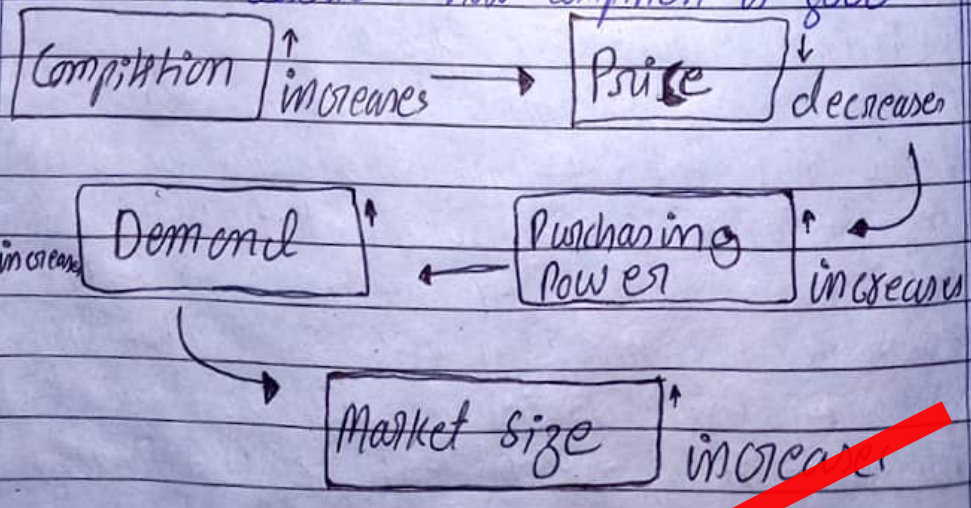 how compition is good
Compitition ↑ increases → Price ↓ decreases
increase Demand ↑ ← Purchasing power ↑ increases
Market size ↑ increases